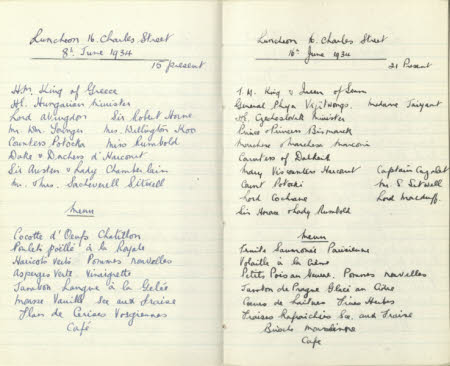 Luncheon 16. Charles Street
8th June 1934
15 present
H.M. King of Greece
H.E. Hungarian Minister
Lord Abingdon Sir Robert Horne
Mr. Wm. Younger Mrs. Wellington Koo
Countess Potocka Miss Rumbold
Duke & Duchess d'Harcourt
Sir Austen & Lady Chamberlain
Mr. & Mrs. Sacheverell Sitwell
Menu
Cocotte d'Oeufs Chatillon
Poulets poëllé à la Royale
Haricots Verts Pommes nouvelles
Asperges Verte Vinaigrette
Jambon Langue à la Gelée
Mousse Vanille Sce aux Fraises
Flan de Cerises Vosgiennes
Café
Luncheon 16. Charles Street
16th June 1934
21 Present
T.M. King & Queen of Siam
General Phya Madame
H.E. Czechoslovak Minister
Prince & Princess Bismarck
Countess of Dalkeith
Mary Viscountess Harcourt Captain Cazalet
Count Potocki Mr S Sitwell
Lord Cochrane Lord Macduff.
Sir Horace & Lady Rumbold
Menu
Truite Saumonée Parisienne
Volaille à la Crème
Petits Pois au Beurre. Pommes nouvelles
Jambon de Prague Glacé au Cidre
Cœurs de Laitues Fines Herbes
Fraises Rafraîchies Sce. aux Fraise
Café